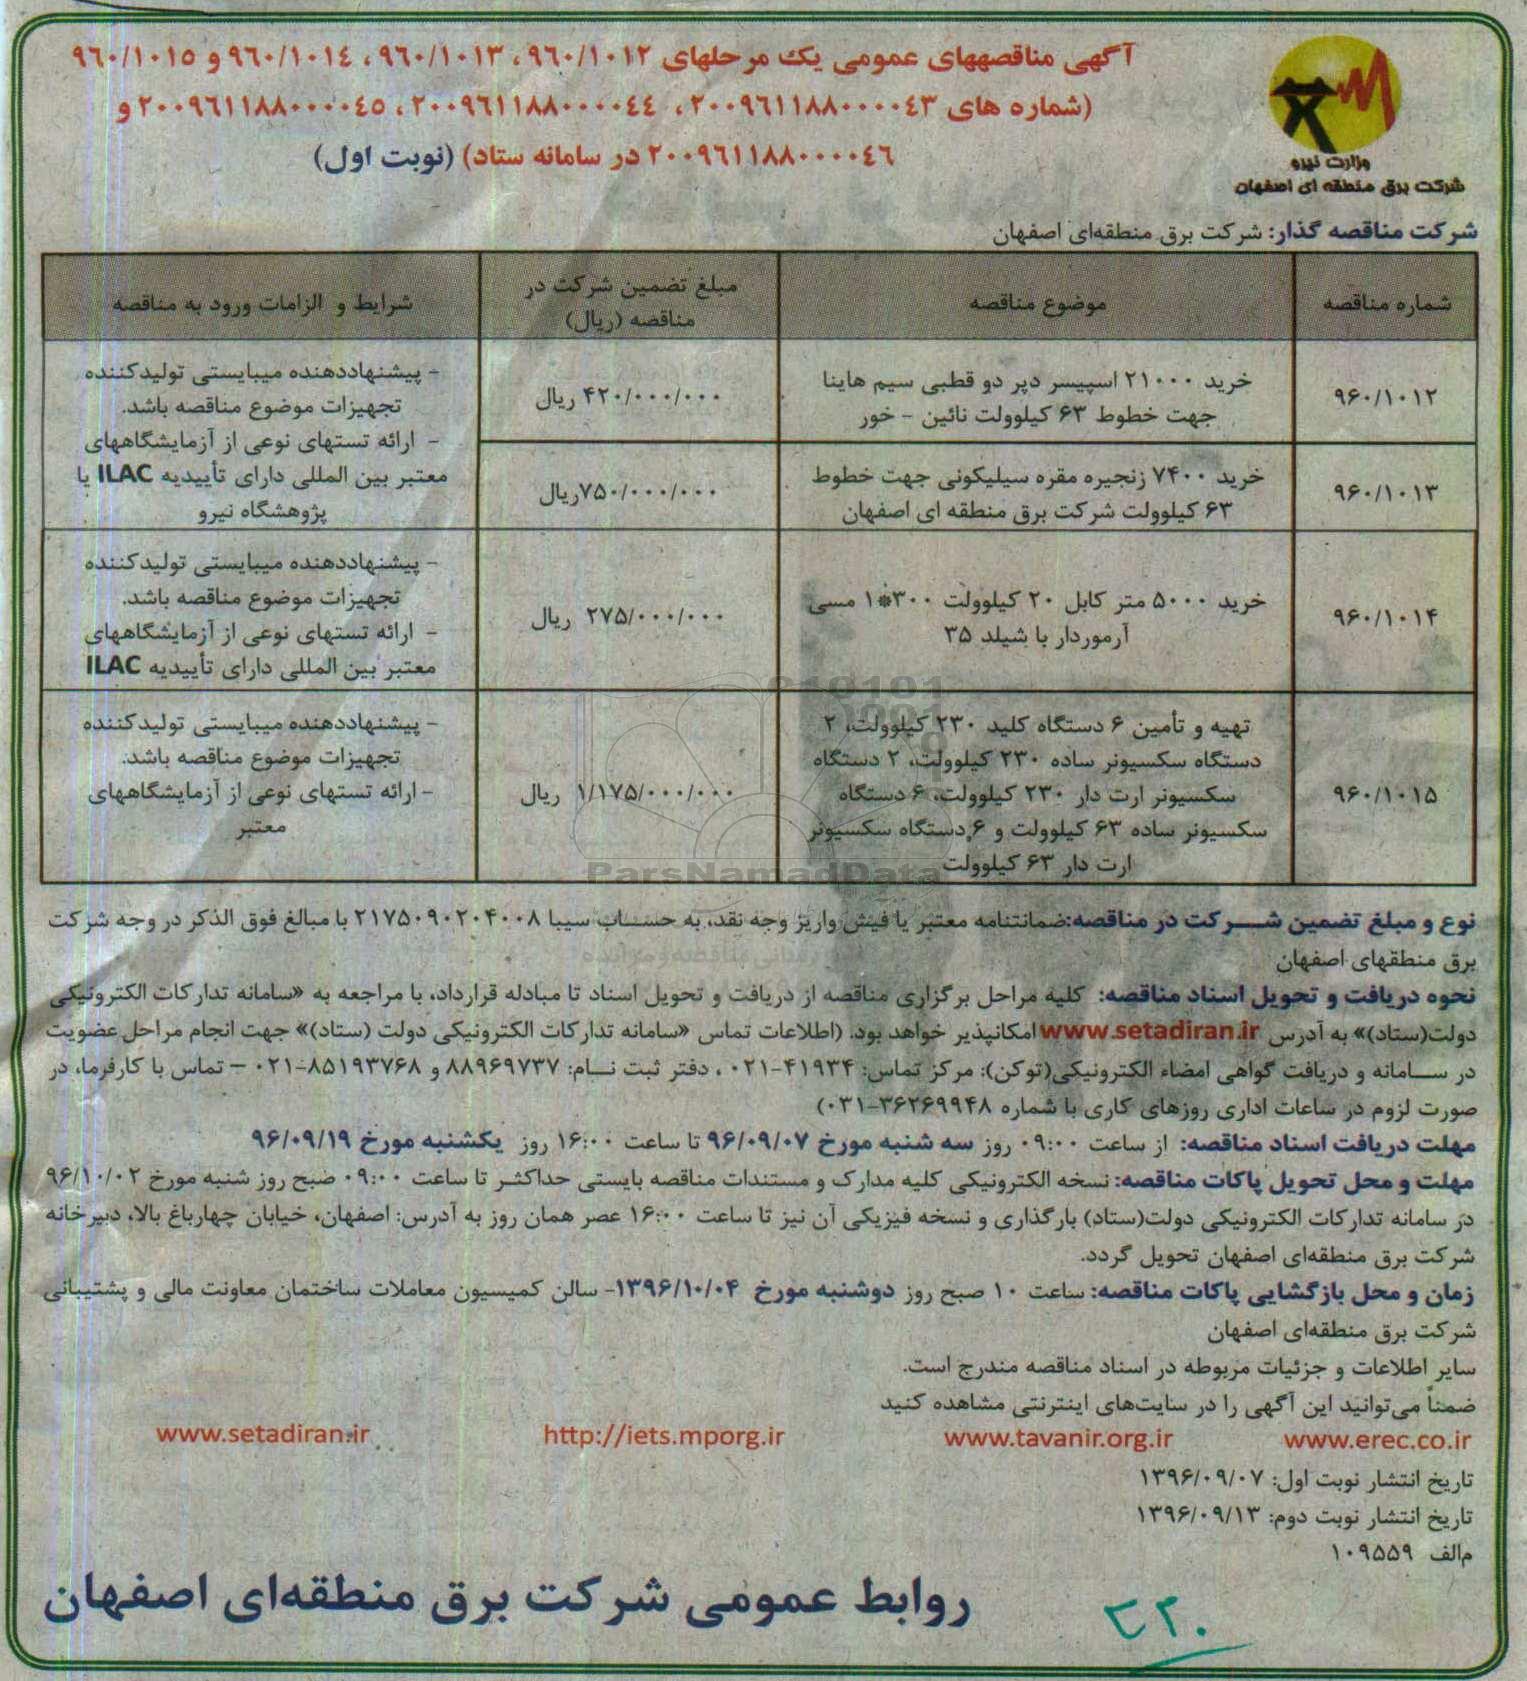 آگهی مناقصههای عمومی یک مرحلهای ۹٦٠/١٠١٢، ۹٦٠/١٠١۳، ۹٦٠/١٠١٤ و ۹٦٠/١٠١٥
(شماره های ۲۰۰۹٦١١٨٨٠٠٠٠٤۳، ۲۰۰۹٦١١٨٨٠٠٠٠٤٤، ۲۰۰۹٦١١٨٨٠٠٠٠٤٥ و
۲۰۰۹٦١١٨٨٠٠٠٠٤٦ در سامانه ستاد) (نوبت اول)
وزارت نیرو
شرکت برق منطقه ای اصفهان
شرکت مناقصه گذار: شرکت برق منطقه‌ای اصفهان
شماره مناقصه
موضوع مناقصه
مبلغ تضمین شرکت در
مناقصه (ریال)
شرایط و الزامات ورود به مناقصه
۹۶۰/۱۰۱۲
خرید ۲۱۰۰۰ اسپیسر دپر دو قطبی سیم هاینا
جهت خطوط ۶۳ کیلوولت نائین - خور
۴۲۰/۰۰۰/۰۰۰ ریال
- پیشنهاددهنده میبایستی تولیدکننده
تجهیزات موضوع مناقصه باشد.
- ارائه تستهای نوعی از آزمایشگاههای
معتبر بین المللی دارای تأییدیه ILAC یا
پژوهشگاه نیرو
۹۶۰/۱۰۱۳
خرید ۷۴۰۰ زنجیره مقره سیلیکونی جهت خطوط
۶۳ کیلوولت شرکت برق منطقه ای اصفهان
۷۵۰/۰۰۰/۰۰۰ریال
۹۶۰/۱۰۱۴
خرید ۵۰۰۰ متر کابل ۲۰ کیلوولت ۳۰۰*۱ مسی
آرموردار با شیلد ۳۵
۲۷۵/۰۰۰/۰۰۰ ریال
- پیشنهاددهنده میبایستی تولیدکننده
تجهیزات موضوع مناقصه باشد.
- ارائه تستهای نوعی از آزمایشگاههای
معتبر بین المللی دارای تأییدیه ILAC
۹۶۰/۱۰۱۵
تهیه و تأمین ۶ دستگاه کلید ۲۳۰ کیلوولت، ۲
دستگاه سکسیونر ساده ۲۳۰ کیلوولت، ۲ دستگاه
سکسیونر ارت دار ۲۳۰ کیلوولت، ۶ دستگاه
سکسیونر ساده ۶۳ کیلوولت و ۶ دستگاه سکسیونر
ارت دار ۶۳ کیلوولت
۱/۱۷۵/۰۰۰/۰۰۰ ریال
- پیشنهاددهنده میبایستی تولیدکننده
تجهیزات موضوع مناقصه باشد.
- ارائه تستهای نوعی از آزمایشگاههای
معتبر
ParsNamadData
نوع و مبلغ تضمین شرکت در مناقصه:ضمانتنامه معتبر یا فیش واریز وجه نقد، به حساب سیبا ۲۱۷۵۰۹۰۲۰۴۰۰۸ با مبالغ فوق الذکر در وجه شرکت
برق منطقهای اصفهان
نحوه دریافت و تحویل اسناد مناقصه: کلیه مراحل برگزاری مناقصه از دریافت و تحویل اسناد تا مبادله قرارداد، با مراجعه به «سامانه تدارکات الکترونیکی
دولت(ستاد)» به آدرس www.setadiran.ir امکانپذیر خواهد بود. (اطلاعات تماس «سامانه تدارکات الکترونیکی دولت (ستاد)» جهت انجام مراحل عضویت
در سامانه و دریافت گواهی امضاء الکترونیکی(توکن): مرکز تماس: ۴۱۹۳۴-۰۲۱ ، دفتر ثبت نام: ۸۸۹۶۹۷۳۷ و ۸۵۱۹۳۷۶۸-۰۲۱ – تماس با کارفرما، در
صورت لزوم در ساعات اداری روزهای کاری با شماره ۳۶۲۶۹۹۴۸-۰۳۱)
مهلت دریافت اسناد مناقصه: از ساعت ۰۹:۰۰ روز سه شنبه مورخ ۹۶/۰۹/۰۷ تا ساعت ۱۶:۰۰ روز یکشنبه مورخ ۹۶/۰۹/۱۹
مهلت و محل تحویل پاکات مناقصه: نسخه الکترونیکی کلیه مدارک و مستندات مناقصه بایستی حداکثر تا ساعت ۰۹:۰۰ صبح روز شنبه مورخ ۹۶/۱۰/۰۲
در سامانه تدارکات الکترونیکی دولت(ستاد) بارگذاری و نسخه فیزیکی آن نیز تا ساعت ۱۶:۰۰ عصر همان روز به آدرس: اصفهان، خیابان چهارباغ بالا، دبیرخانه
شرکت برق منطقه‌ای اصفهان تحویل گردد.
زمان و محل بازگشایی پاکات مناقصه: ساعت ۱۰ صبح روز دوشنبه مورخ ۱۳۹۶/۱۰/۰۴- سالن کمیسیون معاملات ساختمان معاونت مالی و پشتیبانی
شرکت برق منطقه‌ای اصفهان
سایر اطلاعات و جزئیات مربوطه در اسناد مناقصه مندرج است.
ضمناً می‌توانید این آگهی را در سایت‌های اینترنتی مشاهده کنید
www.erec.co.ir www.tavanir.org.ir http://iets.mporg.ir www.setadiran.ir
تاریخ انتشار نوبت اول: ۱۳۹۶/۰۹/۰۷
تاریخ انتشار نوبت دوم: ۱۳۹۶/۰۹/۱۳
م‌الف ۱۰۹۵۵۹
روابط عمومی شرکت برق منطقه‌ای اصفهان